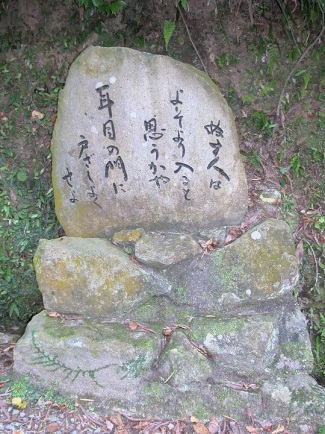 ぬす人は
よそより入ると
思うかや
耳目の門に
戸ざしよく
せよ